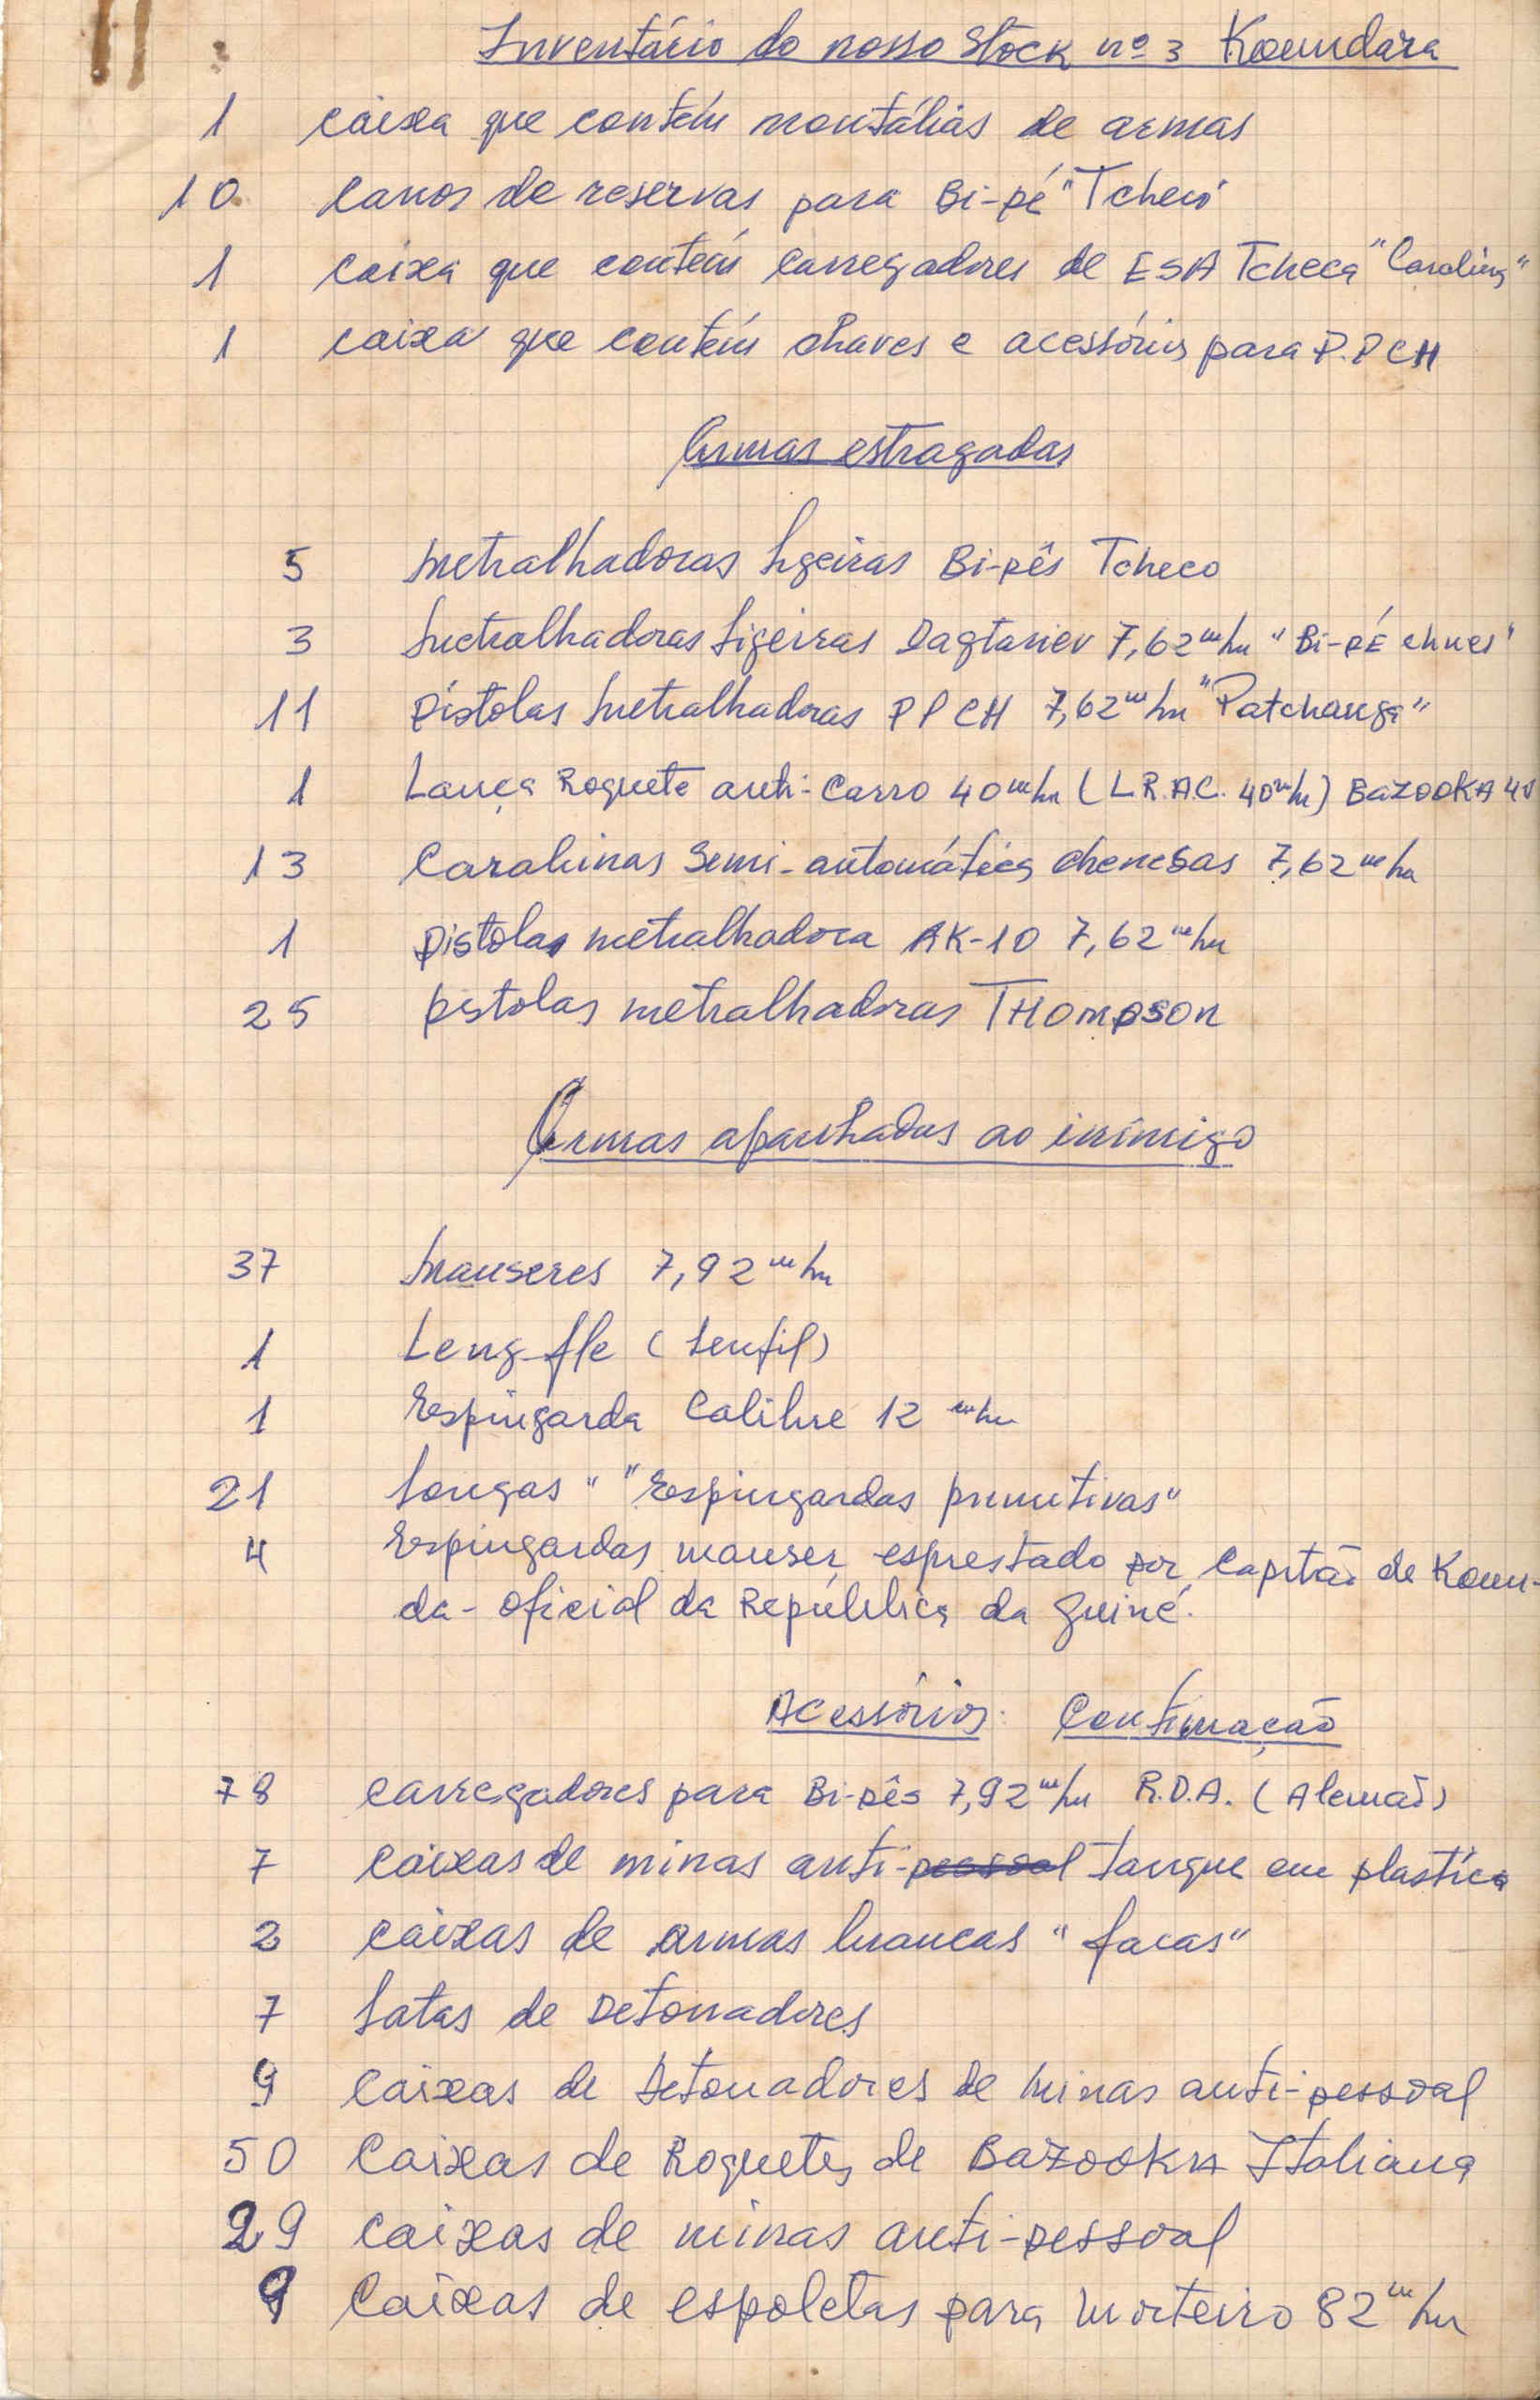 Inventário do nosso Stock nº 3 Koundara
1 caixa que contém montálias de armas
10 canos de reservas para Bi-pé "Tcheco"
1 caixa que contém carregadores de ESA Tcheca "Carolina"
1 caixa que contém chaves e acessórios para P.PCH
Armas estragadas
5 metralhadoras ligeiras Bi-pês Tcheco
3 metralhadoras ligeiras Dagtariev 7,62 m/m "Bi-PÉ
11 Pistolas metralhadoras PPCH 7,62 m/m "Patchanga"
1 Lança Roquete anti-Carro 40 m/m (L.R.A.C. 40 m/m) BazookA
13 Carabinas Semi-automática chenesas 7,62 m/m
1 pistola metralhadora AK-10 7,62 m/m
25 pistolas metralhadoras THOMPSON
Armas apanhadas ao inimigo
37 mauseres 7,92 m/m
1 Leng-fle (Lenfil)
1 Espingarda Calibre 12 m/m
21 Longas " "Espingardas primitivas"
4 Espingardas mauser esprestado por Capitão de Koun-
da - oficial da República da Guiné.
Acessórios: Continuação
78 carregadores para Bi-pês 7,92 m/m R.D.A. (Alemã)
7 caixas de minas anti-pessoal tanque em plastica
2 caixas de armas brancas "facas"
7 latas de Detonadores
9 caixas de Detonadores de minas anti-pessoal
50 Caixas de Roquetes de BazookA Italiana
29 caixas de minas anti-pessoal
9 Caixas de espoletas para morteiro 82 m/m